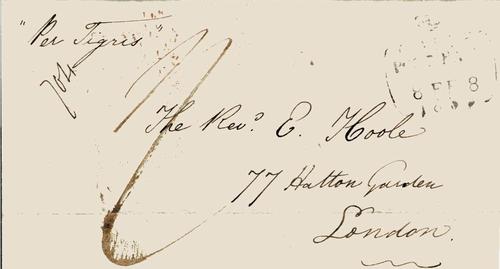 "Per Tigris"
The Revd. E. Hoole
77 Hatton Garden
London.
8 FE 8